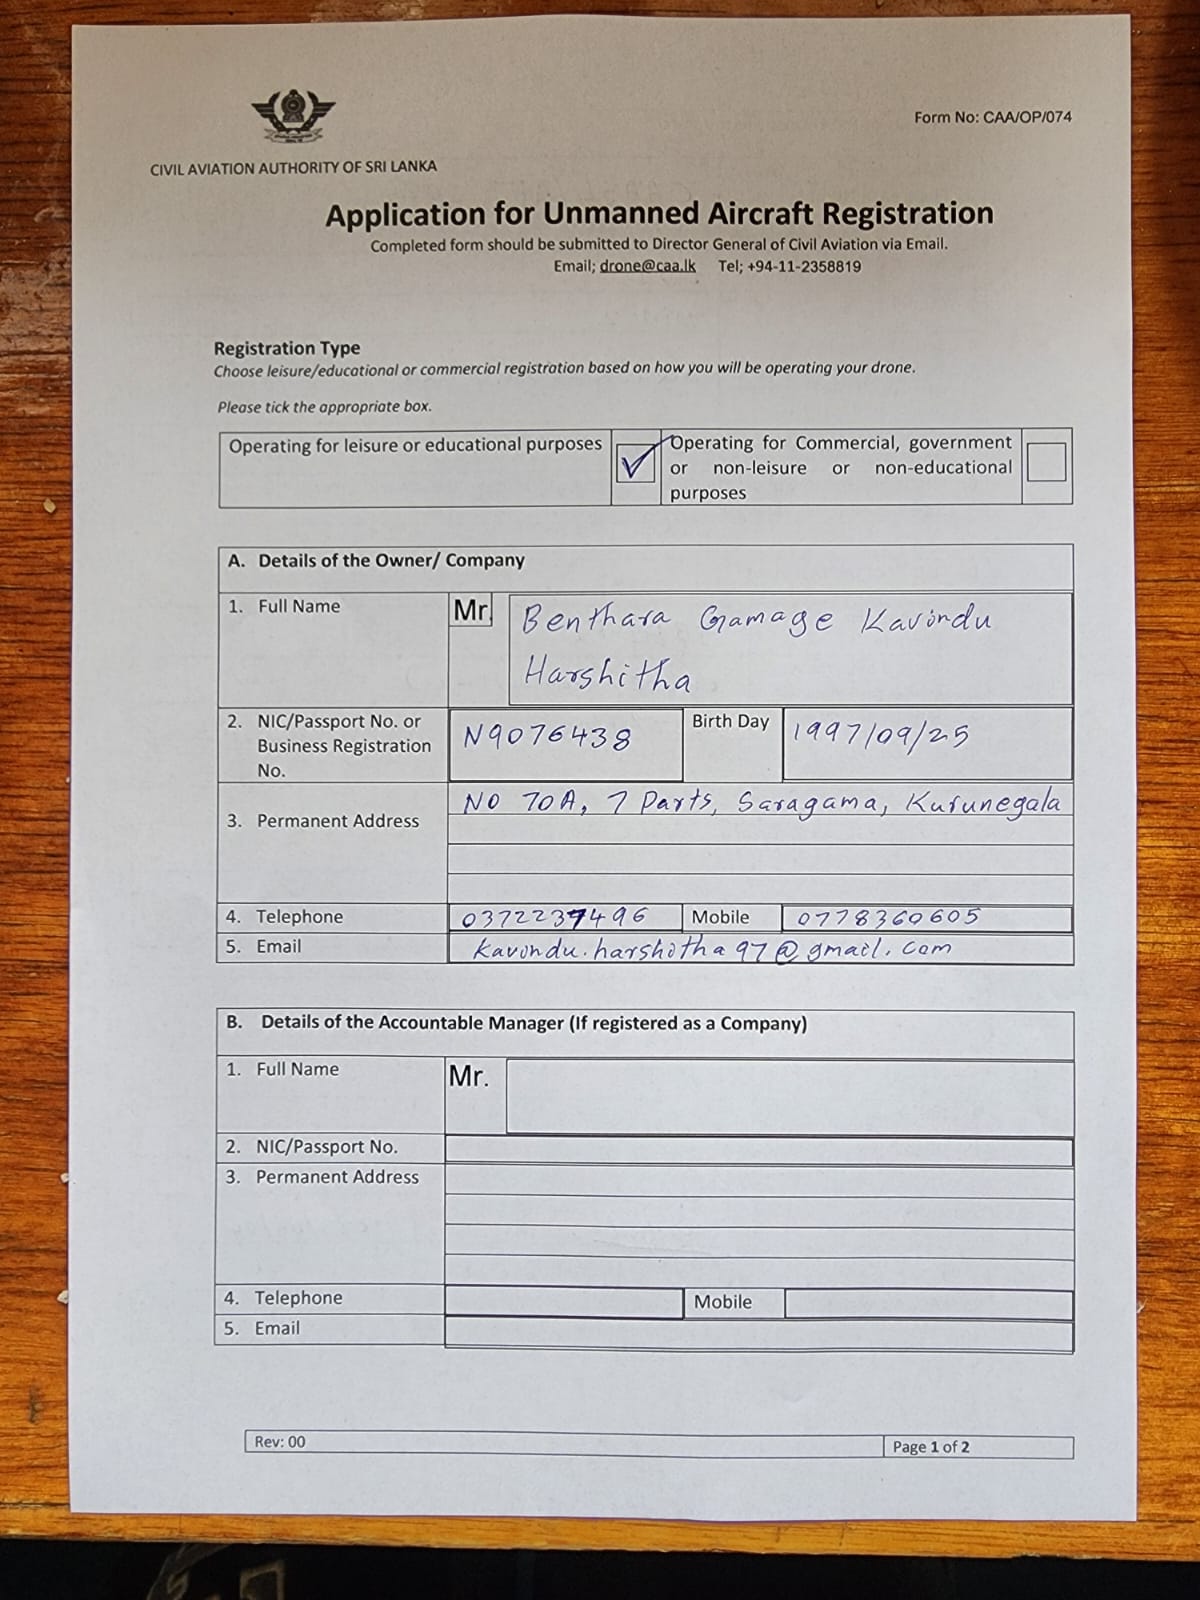 Form No: CAA/OP/074
CIVIL AVIATION AUTHORITY OF SRI LANKA
Application for Unmanned Aircraft Registration
Completed form should be submitted to Director General of Civil Aviation via Email.
Email; drone@caa.lk Tel; +94-11-2358819
Registration Type
Choose leisure/educational or commercial registration based on how you will be operating your drone.
Please tick the appropriate box.
Operating for leisure or educational purposes
Operating for Commercial, government
or non-leisure or non-educational
purposes
A. Details of the Owner/ Company
1. Full Name Mr. Benthara Gamage Kavindu
Harshitha
2. NIC/Passport No. or
Business Registration
No.
N9076438
Birth Day 1997/09/25
3. Permanent Address
No 70A, 7 Parts, Saragama, Kurunegala
4. Telephone 0372237496 Mobile 0778360605
5. Email kavindu.harshitha97@gmail.com
B. Details of the Accountable Manager (If registered as a Company)
1. Full Name Mr.
2. NIC/Passport No.
3. Permanent Address
4. Telephone Mobile
5. Email
Rev: 00 Page 1 of 2